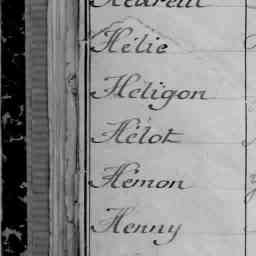 Hélie
Heligon
Hélot
Hémon
Henny